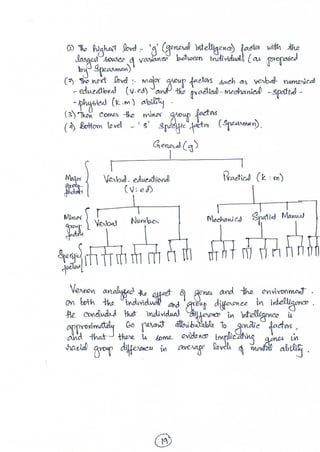 (1) The highest level :- 'g' (general intelligence) factor with the
largest source of variance between individuals (as proposed
by Spearman)
(2) The next level :- major group factors such as verbal numerical
- educational (v.ed) and the practical - mechanical - spatial -
- physical (k.m) ability -
(3) Then comes the minor group factors
(4) Bottom level - 's' specific factor (Spearman).
General (g)
Major group factors
Verbal. educational (v:ed)
Practical (k:m)
Minor group factors
Verbal Number Mechanical Spatial Manual
Specific factors
Vernon analysed the effect of genes and the environment
on both the individual and group difference in intelligence.
He concluded that individual difference in intelligence is
approximately 60 percent attributable to genetic factors,
and that there is some evidence implicating genes in
racial group differences in average levels of mental ability.
19